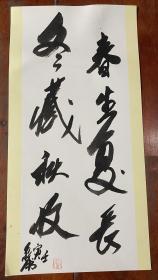 春生夏长
冬藏秋收